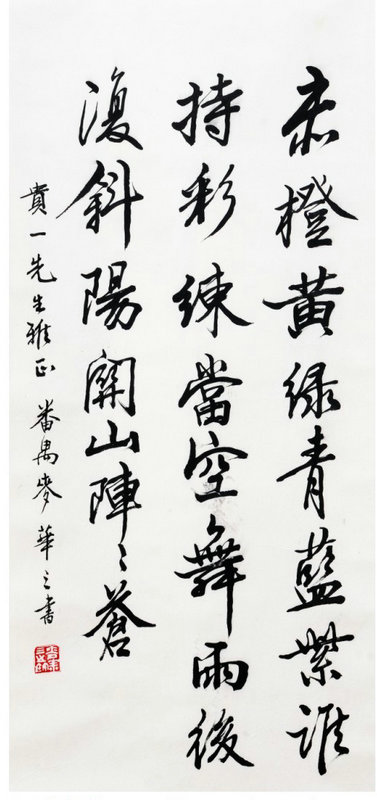 赤橙黃綠青藍紫誰
持彩練當空舞雨後
復斜陽關山陣〻蒼
貴一先生雅正 番禺麥華三書